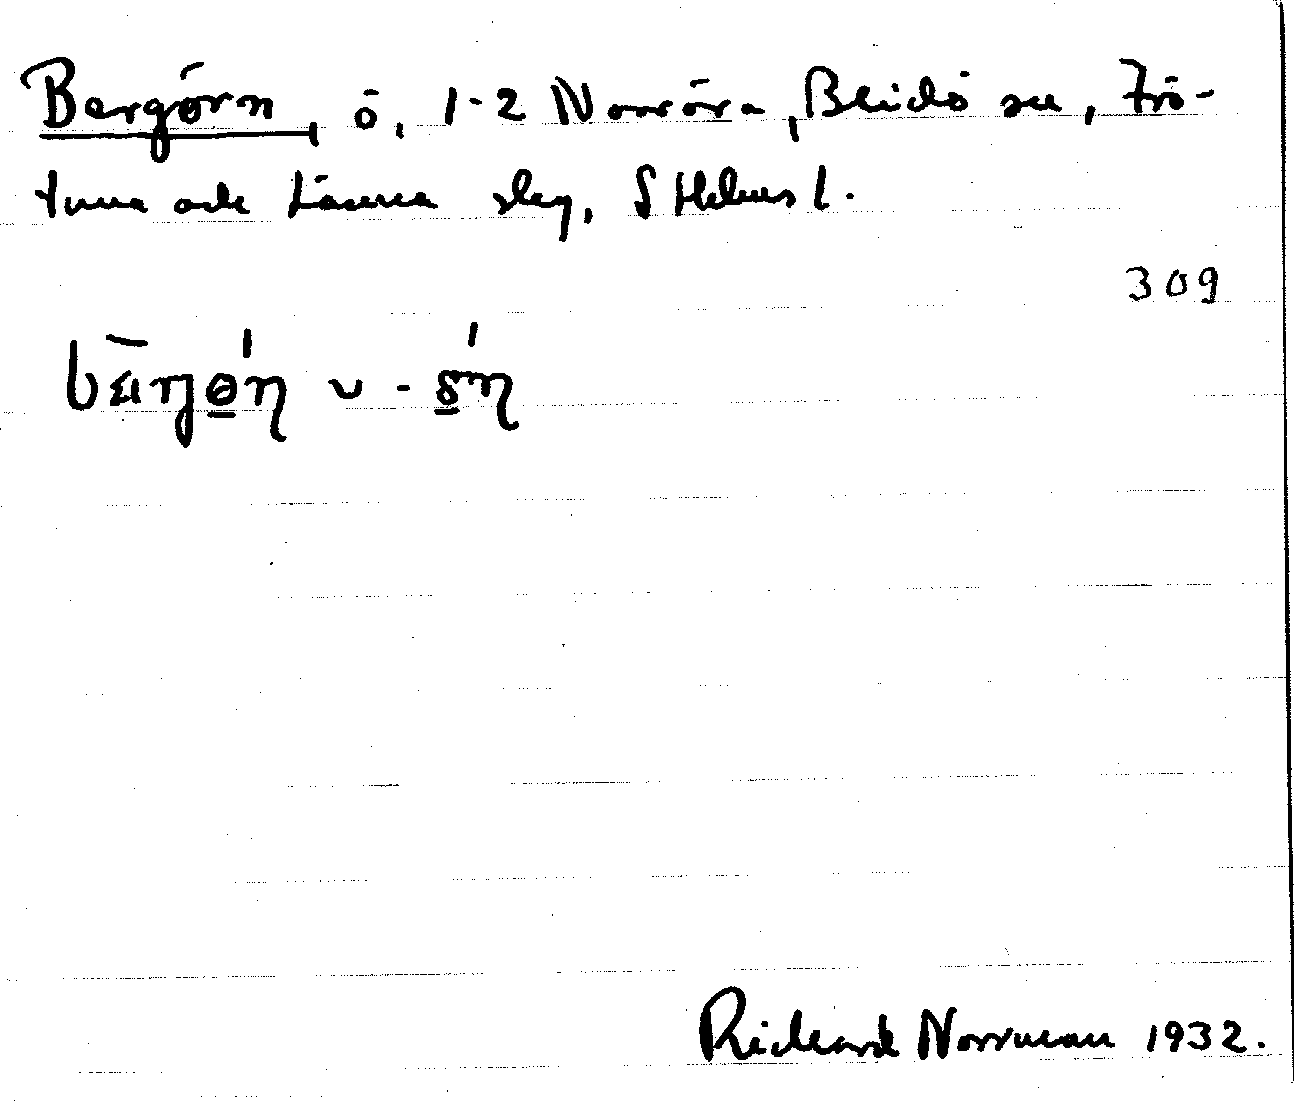 Bergörn, ö, 1-2 Norröra, Blidö sn, Frö-
tuna och Länna skg, Sthlms l.
309
Rickard Norrman 1932.